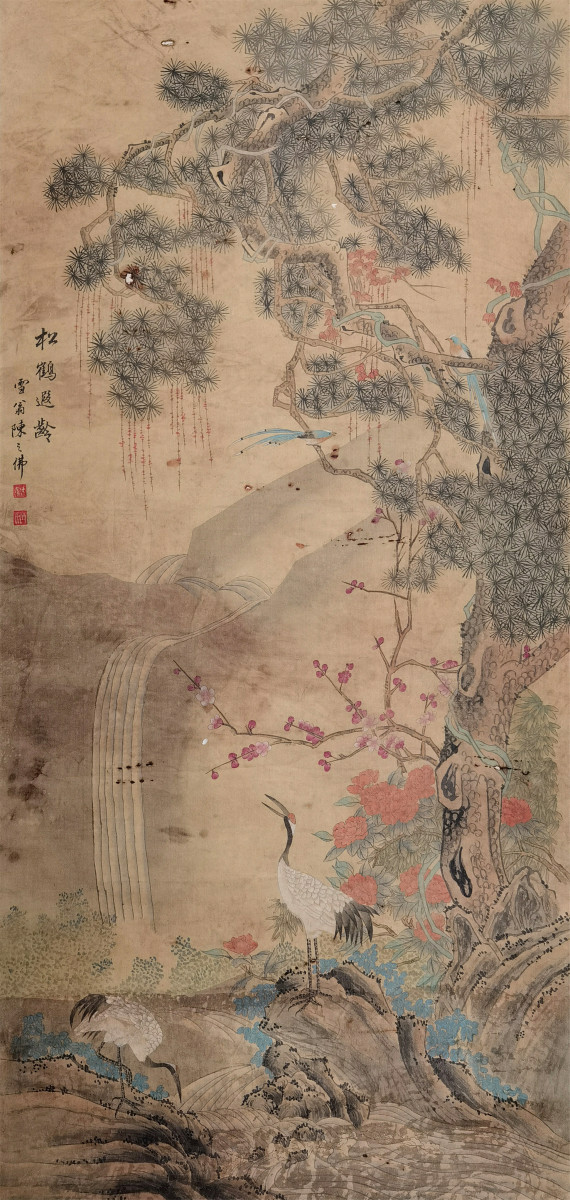 松鶴遐齡
雪翁陳之佛